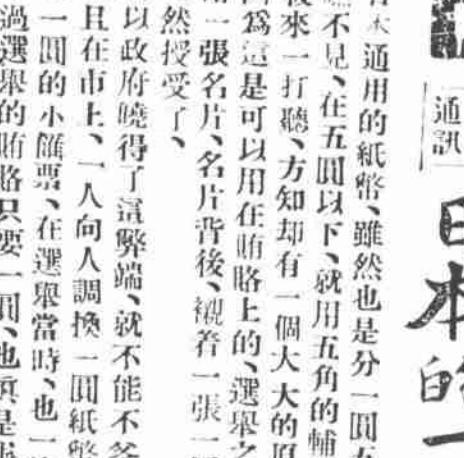 通訊
日本的一
通用的紙幣、雖然也是分一圓五
不見、在五圓以下、就用五角的輔
後來一打聽、方知却有一個大大的原
因爲這是可以用在賄賂上的、選舉之
一張名片、名片背後、襯着一張一
然授受了、
以政府曉得了這弊端、就不能不
且在市上、一人向人調換一圓紙幣
一圓的小匯票、在選舉當時、也一
過選舉的賄賂只要一圓、也眞是